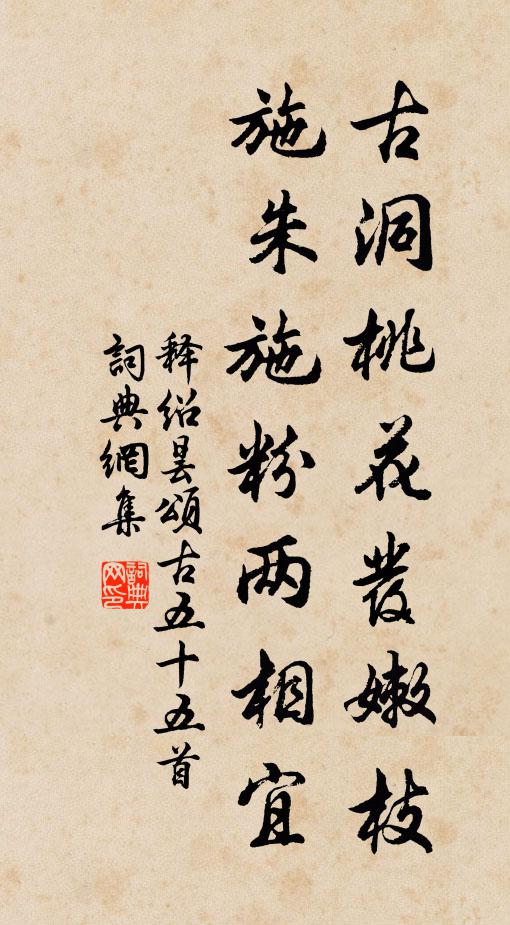 古洞桃花發嫩枝
施朱施粉两相宜
释绍昙頌古五十五首
詞典網集
詞典网印